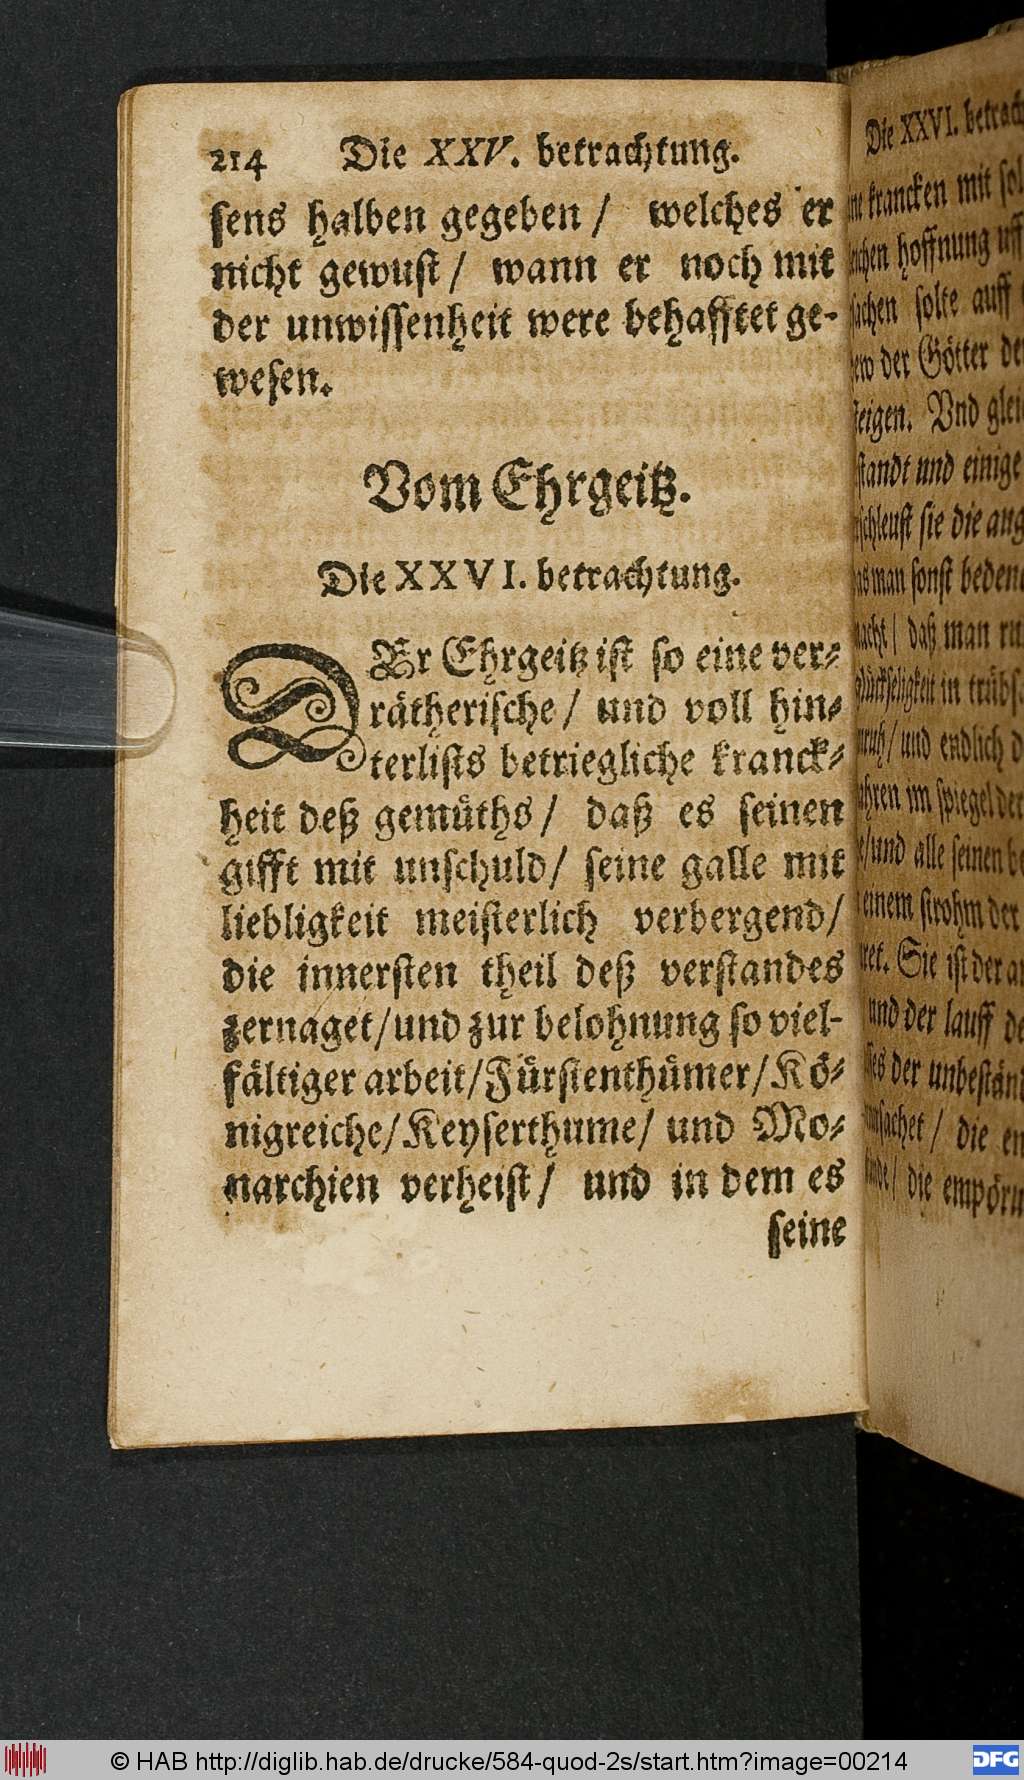 214 Die XXV. betrachtung.
sens halben gegeben / welches er
nicht gewust / wann er noch mit
der unwissenheit were behafftet ge-
wesen.
Vom Ehrgeitz.
Die XXVI. betrachtung.
DEr Ehrgeitz ist so eine ver-
rätherische / und voll hin-
terlists betriegliche kranck-
heit deß gemüths / daß es seinen
gifft mit unschuld / seine galle mit
liebligkeit meisterlich verbergend /
die innersten theil deß verstandes
zernaget / und zur belohnung so viel-
fältiger arbeit / Fürstenthümer / Kö-
nigreiche / Keyserthume / und Mo-
narchien verheist / und in dem es
seine
Die XXVI.
krancken mit
hoffnung
solte auff
der Götter
Vnd
und einige
sie die
man sonst
daß man
in
und endlich
im spiegel der
und alle seinen
einem strohm der
Sie ist der
und der lauff
der
die
die
© HAB http://diglib.hab.de/drucke/584-quod-2s/start.htm?image=00214
DFG